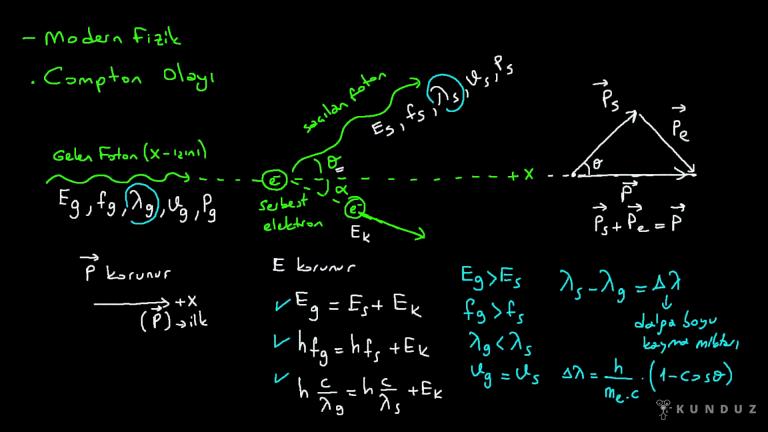 - Modern Fizik
. Compton Olayı
saçılan foton
Es, fs, λs, υs, Ps
Gelen Foton (X-ışını)
Eg, fg, λg, υg, Pg
e⁻
θ
α
+x
serbest elektron
e⁻
Ek
P⃗s
P⃗e
θ
P⃗
P⃗s + P⃗e = P⃗
P⃗ korunur
+x
(P⃗) → ilk
E korunur
✓ Eg = Es + Ek
✓ hfg = hfs + Ek
✓ h c/λg = h c/λs + Ek
Eg > Es
fg > fs
λg < λs
υg = υs
λs - λg = Δλ
dalga boyu
kayma miktarı
Δλ = h/me.c . (1-cosθ)
KUNDUZ